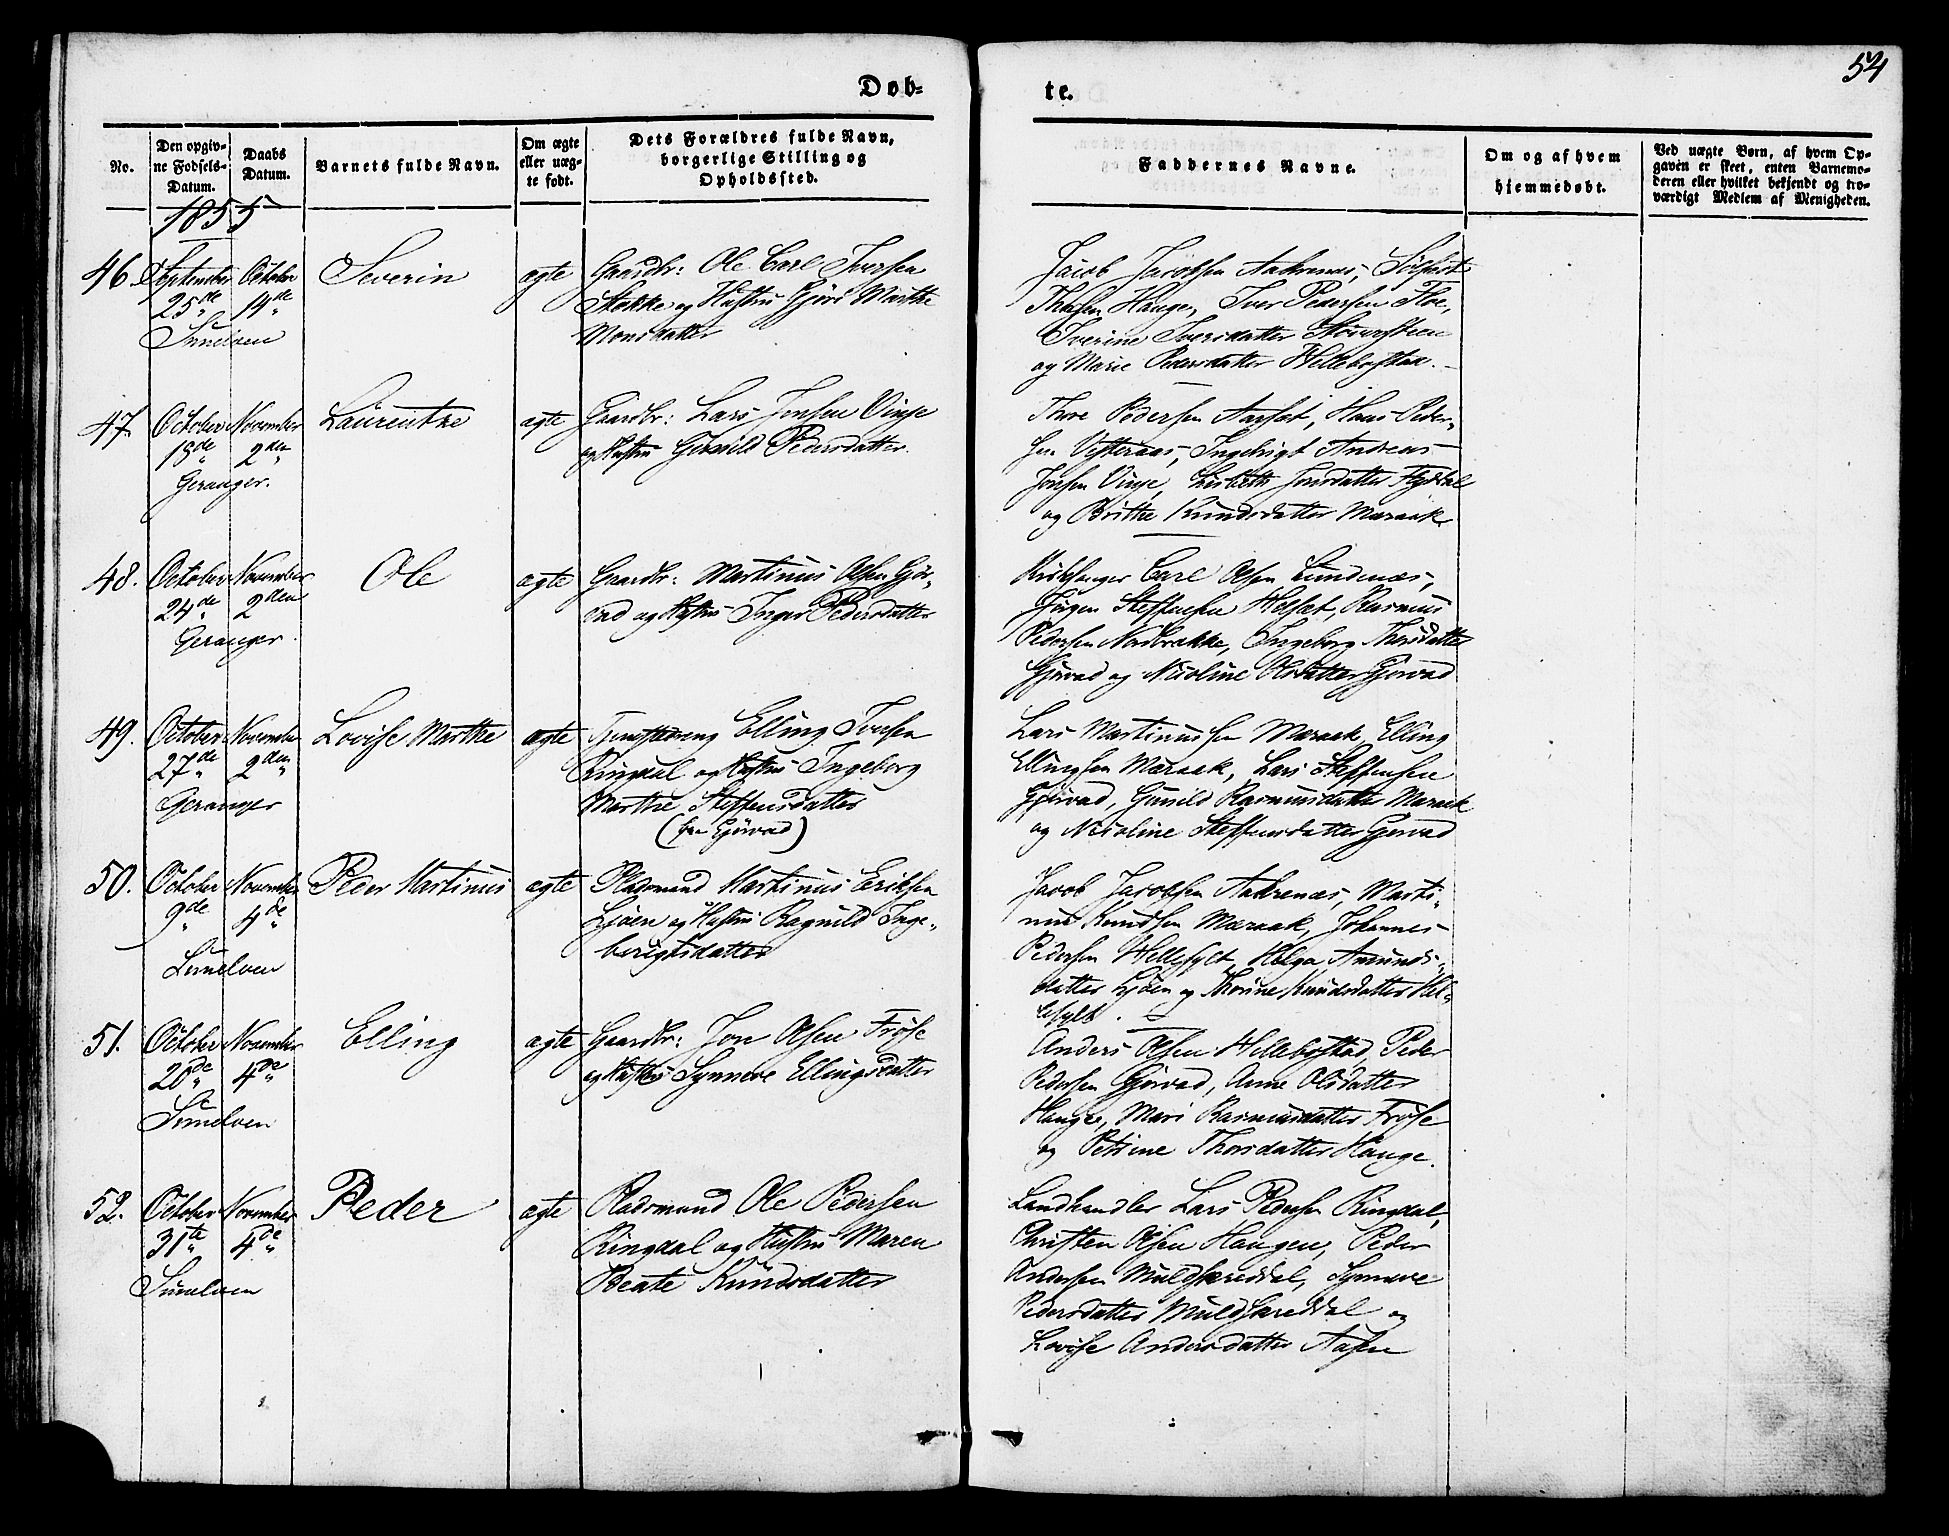 54
Døb-
te.
No.
Den opgiv-
ne Fødsels-
Datum.
Daabs
Datum.
Barnets fulde Navn.
Om ægte
eller uæg-
te født.
Dets Forældres fulde Navn,
borgerlige Stilling og
Opholdssted.
Faddernes Navne.
Om og af hvem
hjemmedøbt.
Ved uægte Børn, af hvem Op-
gaven er skeet, enten Barnemo-
deren eller hvilket bekjendt og tro-
værdigt Medlem af Menigheden.
1855
46. September October Severin ægte Gaardbr: Ole Carl Iversen
25de 14de Stokke og Hustru Gjøri Marthe
Sunelven Monsdatter
Jacob Jacobsen Aakrenæs,
Hauge, Iver Pedersen Floe,
Iverine Iversdatter
og Marie Pedersdatter Hellebostad.
47. October November Laurentze ægte Gaardbr: Lars Jonsen Vinje
18de 2den og Hustru Gunild Pedersdatter.
Geranger.
Thore Pedersen Aarsæt, Hans Peder-
sen Vesteraas, Ingebrigt Andreas
Jonsen Vinje, Lisbeth Jonsdatter Flydal
og Brithe Knudsdatter Maraak
48. October November Ole ægte Gaardbr: Martinus Olsen Gjør-
24de 2den vad og Hustru Inger Pedersdatter
Geranger.
Kirkesanger Carl Olsen Lundenæs,
Jørgen Steffensen Helsæt, Rasmus
Pedersen Nordbrække, Ingeborg Thorsdatter
Gjørvad og Nicoline Olsdatter Gjørvad
49. October November Lovise Marthe ægte Tjenestedreng Elling Iversen
27de 2den Ringdal og Hustru Ingeborg
Geranger Marthe Steffensdatter
(fra Gjørvad)
Lars Martinussen Maraak, Elling
Ellingsen Maraak, Lars Steffensen
Gjørvad, Gunild Rasmusdatter Maraak
og Nicoline Steffensdatter Gjørvad
50. October November Peder Martinus ægte Pladsmand Martinus Eriksen
9de 4de Ljøen og Hustru Ragnild Inge-
Sunelven berigtsdatter
Jacob Jacobsen Aakrenæs, Marti-
nus Knudsen Maraak, Johannes
Pedersen Hellesylt, Helga Amunds-
datter Ljøen og Thorine Knudsdatter Hel-
lesylt.
51. October November Elling ægte Gaardbr: Jon Olsen Frøse
20de 4de og Hustru Synneve Ellingsdatter
Sunelven
Anders Olsen Hellebostad, Peder
Pedersen Gjørvad, Anne Olsdatter
Hauge, Mari Rasmusdatter Frøse
og Petrine Thorsdatter Hauge.
52. October November Peder ægte Pladsmand Ole Pedersen
31te 4de Ringdal og Hustru Maren
Sunelven Beate Knudsdatter
Landhandler Lars Pedersen Ringdal,
Christen Olsen Haugen, Peder
Andersen Muldskreddal, Synneve
Pedersdatter Muldskreddal og
Lovise Andersdatter Aasen